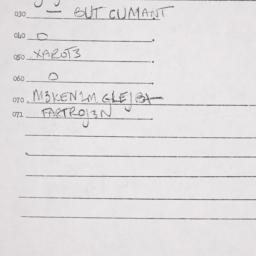 030. — BUT CUMANT
040 O
050 XAROT3
060 O
070. M3KEN1M GLEJBA
071 FARTROJ3N